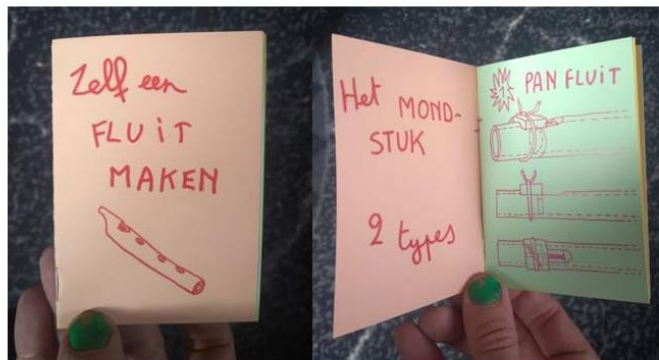 Zelf een
FLUIT
MAKEN
Het MOND-
STUK
2 types
1 PAN FLUIT